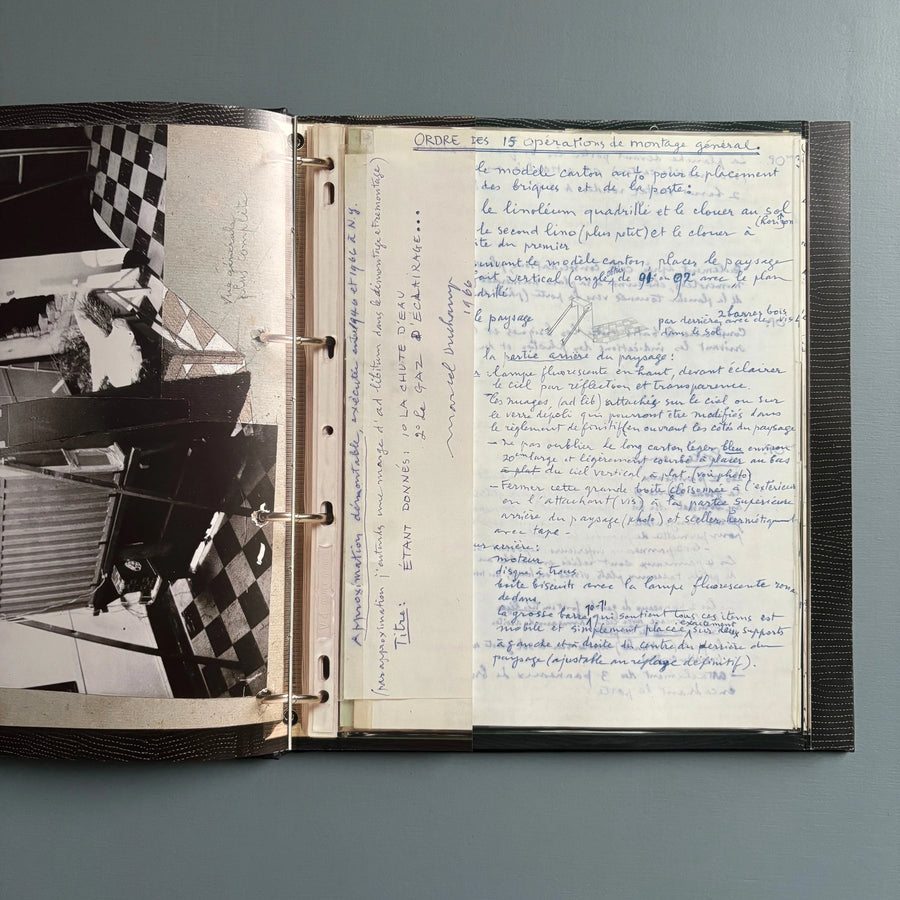 Vue générale
plus complète
Approximation démontable, exécutée entre 1946 et 1966 à N.Y.
(par approximation j'entends une marge d'ad libitum dans le démontage et remontage)
Titre: ÉTANT DONNÉS: 1° LA CHUTE D'EAU
2° LE GAZ D'ÉCLAIRAGE...
Marcel Duchamp
1966
ORDRE DES 15 opérations de montage général.
le modèle carton pour le placement
des briques et de la porte:
le linoléum quadrillé et le clouer au sol
(horizon
le second lino (plus petit) et le clouer à
ite du premier
suivant le modèle carton, placez le paysage
vertical (angle de 91° 92° avec le plan
drillé
le paysage
par derrière, avec des vis
2 barres bois
dans le sol
la partie arrière du paysage:
lampe fluorescente en haut, devant éclairer
le ciel par réflection et transparence.
les nuages, (ad lib) attachés sur le ciel ou sur
le verre dépoli qui pourront être modifiés dans
le règlement définitif (en ouvrant les côtés du paysage
- ne pas oublier le long carton léger bleu environ
20 cm large et légèrement courbé à placer au bas
à plat du ciel vertical, à plat. (voir photo)
- Fermer cette grande boîte cloisonnée à l'extérieur
en l'attachant (vis) à la partie supérieure
arrière du paysage (photo) et sceller hermétiquement
avec tape -
arrière:
moteur
disque à trous
boîte biscuits avec la lampe fluorescente ronde
dedans,
la grosse barre qui soutient tous ces items est
mobile et simplement placée exactement sur deux supports
à gauche et à droite du centre du derrière du
paysage (ajustable au réglage définitif).